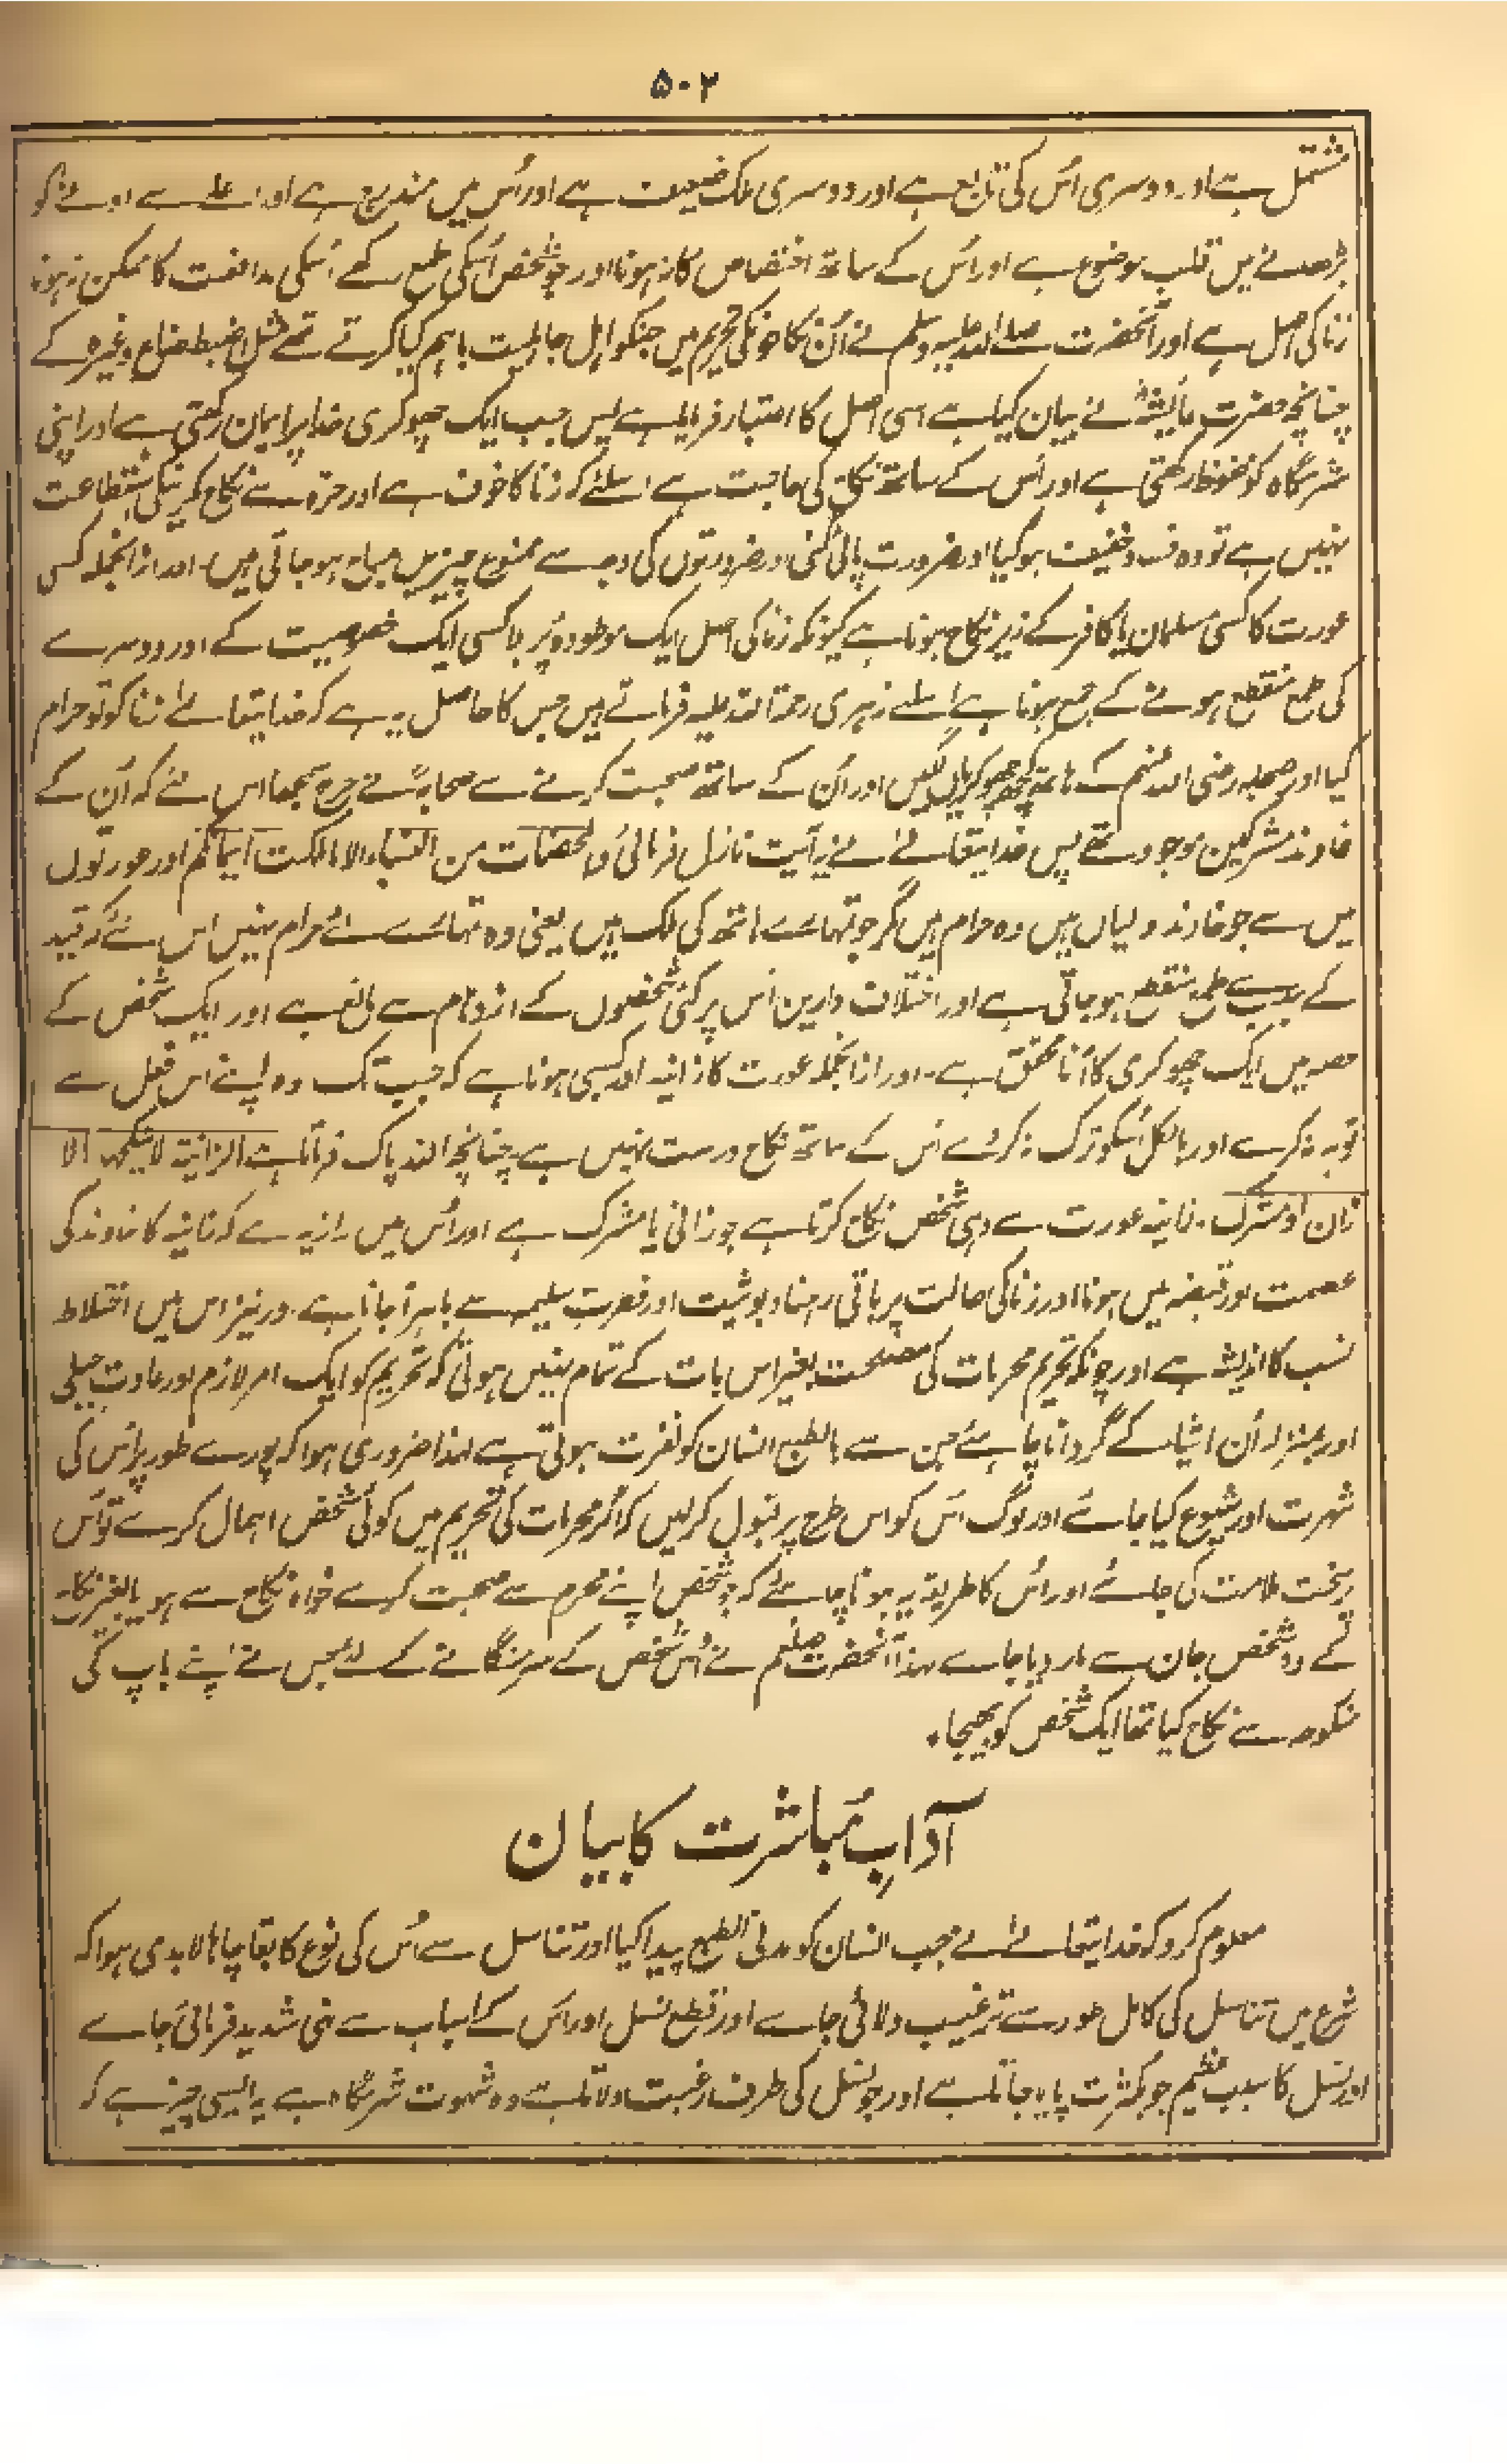 ۵۰۲
مشتمل ہے اور دوسری اُس کی تابع ہے اور دوسری ملک ضعیف ہے اور اُس میں مندرج ہے اور اعلے سے ادنے کو
میں قلب موضوع ہے اور اُس کے ساتھ اختصاص کا نہ ہونا اور جو شخص اُسکی طمع رکھے اُسکی مدافعت کا ممکن نہ ہونا
زنا کی اصل ہے اور آنحضرت صلے اللہ علیہ وسلم نے اُن نکاحونکی تحریم میں جنکو اہل جاہلیت باہم کیا کرتے تھے مثل وغیرہ کے
چنانچہ حضرت عائشہؓ نے بیان کیا ہے اسی اصل کا اعتبار فرمایا ہے پس جب ایک چھوکری خدا پر ایمان رکھتی ہے اور اپنی
شرمگاہ کو محفوظ رکھتی ہے اور اُس کے ساتھ نکاح کی حاجت ہے اسلئے کہ زنا کا خوف ہے اور حرہ سے نکاح کرنیکی استطاعت
نہیں ہے تو وہ فساد خفیف ہو گیا اور ضرورت پائی گئی اور ضرورتوں کی وجہ سے ممنوع چیزیں مباح ہو جاتی ہیں۔ اور ازانجملہ کسی
عورت کا کسی مسلمان یا کافر کے زیر نکاح ہونا ہے کیونکہ زنا کی اصل ایک موطوءہ پر بلا کسی ایک خصوصیت کے اور دوسرے
کی طمع منقطع ہونے کے جمع ہونا ہے اسلئے زہری رحمۃ اللہ علیہ فرماتے ہیں جس کا حاصل یہ ہے کہ خدا یتعالےٰ نے زنا کو تو حرام
کیا اور صحابہ رضی اللہ عنہم کے ہاتھ کچھ چھوکریاں لگیں اور اُن کے ساتھ صحبت کرنے سے صحابہؓ نے حرج سمجھا اس لئے کہ اُن کے
خاوند مشرکین موجود تھے پس خدا یتعالےٰ نے یہ آیت نازل فرمائی والمحصنات من النساء الا ما ملکت ایمانکم اور عورتوں
میں سے جو خاوند والیاں ہیں وہ حرام ہیں مگر جو تمہارے ہاتھ کی ملک ہیں یعنی وہ تمہارے لئے حرام نہیں اس لئے کہ قید
کے سبب سے طمع منقطع ہو جاتی ہے اور اختلاف دارین اُس پر کئی شخصوں کے ازدحام سے مانع ہے اور ایک شخص کے
حصہ میں ایک چھوکری کا آنا محقق ہے۔ اور ازانجملہ عورت کا زانیہ اور کسبی ہونا ہے کہ جب تک وہ اپنے اس فعل سے
توبہ نہ کرے اور بالکل اُسکو ترک نہ کرے اُس کے ساتھ نکاح درست نہیں ہے چنانچہ اللہ پاک فرماتا ہے الزانیۃ لا ینکحہا الا
زان او مشرک۔ زانیہ عورت سے وہی شخص نکاح کرتا ہے جو زانی یا مشرک ہے اور اُس میں راز یہ ہے کہ زانیہ کا خاوند کی
عصمت اور قبضہ میں ہونا اور زنا کی حالت پر باقی رہنا دیوثیت اور فطرت سلیمہ سے باہر آ جانا ہے۔ اور نیز اس میں اختلاط
نسب کا اندیشہ ہے اور چونکہ تحریم محرمات کی مصلحت بغیر اس بات کے تمام نہیں ہوتی کہ تحریم کو ایک امر لازم اور عادت جبلی
اور بمنزلہ اُن اشیاء کے گردانا چاہئے جن سے بالطبع انسان کو نفرت ہوتی ہے لہذا ضروری ہوا کہ پورے طور پر اُس کی
شہرت اور شیوع کیا جائے اور لوگ اُس کو اس طرح پر قبول کر لیں کہ اگر محرمات کی تحریم میں کوئی شخص اہمال کرے تو اُس
پر سخت ملامت کی جائے اور اُس کا طریقہ یہ ہونا چاہئے کہ جو شخص اپنے محرم سے صحبت کرے خواہ نکاح سے ہو یا بغیر نکاح
کے وہ شخص جان سے مار دیا جاے لہذا آنحضرت صلعم نے اُس شخص کے سر منگانے کے لئے جس نے اپنے باپ کی
منکوحہ سے نکاح کیا تھا ایک شخص کو بھیجا۔
آدابِ مُباشرت کا بیان
معلوم کرو کہ خدا یتعالےٰ نے جب انسان کو مدنی الطبع پیدا کیا اور تناسل سے اُس کی نوع کا بقا چاہا لابدی ہوا کہ
شرع میں تناسل کی کامل طور سے ترغیب دلائی جاے اور قطع نسل اور اُس کے اسباب سے نہی شدید فرمائی جاے
اور نسل کا سبب عظیم جو بکثرت پایا جاتا ہے اور جو نسل کی طرف رغبت دلاتا ہے وہ شہوت شرمگاہ ہے یہ ایسی چیز ہے کہ